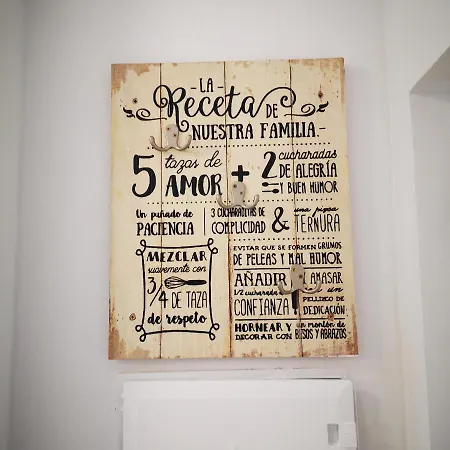 -LA-
Receta DE
NUESTRA FAMILIA.-
5 tazas de AMOR + 2 cucharadas DE ALEGRÍA Y BUEN HUMOR
Un puñado de PACIENCIA
3 CUCHARADITAS DE COMPLICIDAD
& una pizca TERNURA
MEZCLAR
suavemente con
3/4 DE TAZA
de respeto
EVITAR QUE SE FORMEN GRUMOS
DE PELEAS Y MAL HUMOR
AÑADIR
1/2 cucharada
CONFIANZA
AMASAR
un
PELLIZCO DE
DEDICACIÓN
HORNEAR Y un montón de
DECORAR CON BESOS Y ABRAZOS